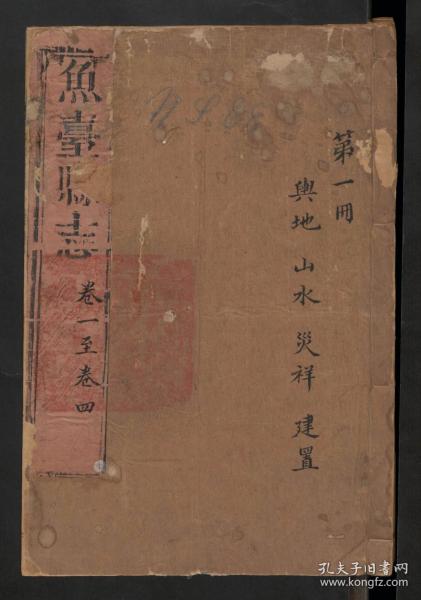 第一冊
輿地 山水 災祥 建置
魚臺縣志
卷一至卷四
孔夫子旧书网
www.kongfz.com